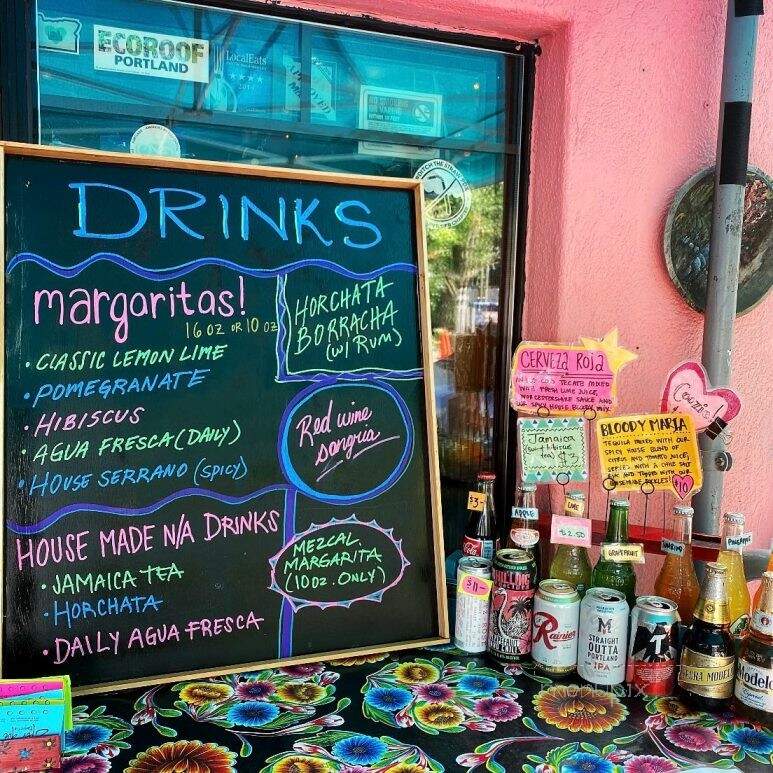 ECOROOF
PORTLAND
LocalEats
DRINKS
margaritas!
16 OZ OR 10 OZ
• CLASSIC LEMON LIME
• POMEGRANATE
• HIBISCUS
• AGUA FRESCA (DAILY)
• HOUSE SERRANO (SPICY)
HORCHATA
BORRACHA
(w/ RUM)
Red wine
sangria
HOUSE MADE N/A DRINKS
• JAMAICA TEA
• HORCHATA
• DAILY AGUA FRESCA
MEZCAL
MARGARITA
(10 OZ. ONLY)
CERVEZA ROJA
TECATE MIXED
FRESH LIME JUICE,
WORCESTERSHIRE SAUCE AND
SPICY HOUSE BLOODY MIX
Jamaica
tea)
$3
BLOODY MARIA
TEQUILA MIXED WITH OUR
SPICY HOUSE BLEND OF
CITRUS AND TOMATO JUICE,
WITH A CHILE SALT
RIM AND TOPPED WITH OUR
PICKLES!
$10
$3-
APPLE
LIME
$2.50
GRAPEFRUIT
PINEAPPLE
Rainier
STRAIGHT
OUTTA
PORTLAND
IPA
Modelo